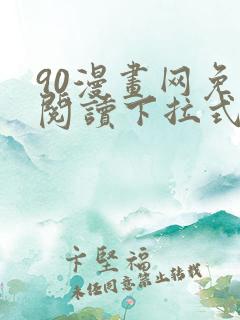 90漫畫网免
閱讀下拉式
卞堅福
未经同意禁止转载